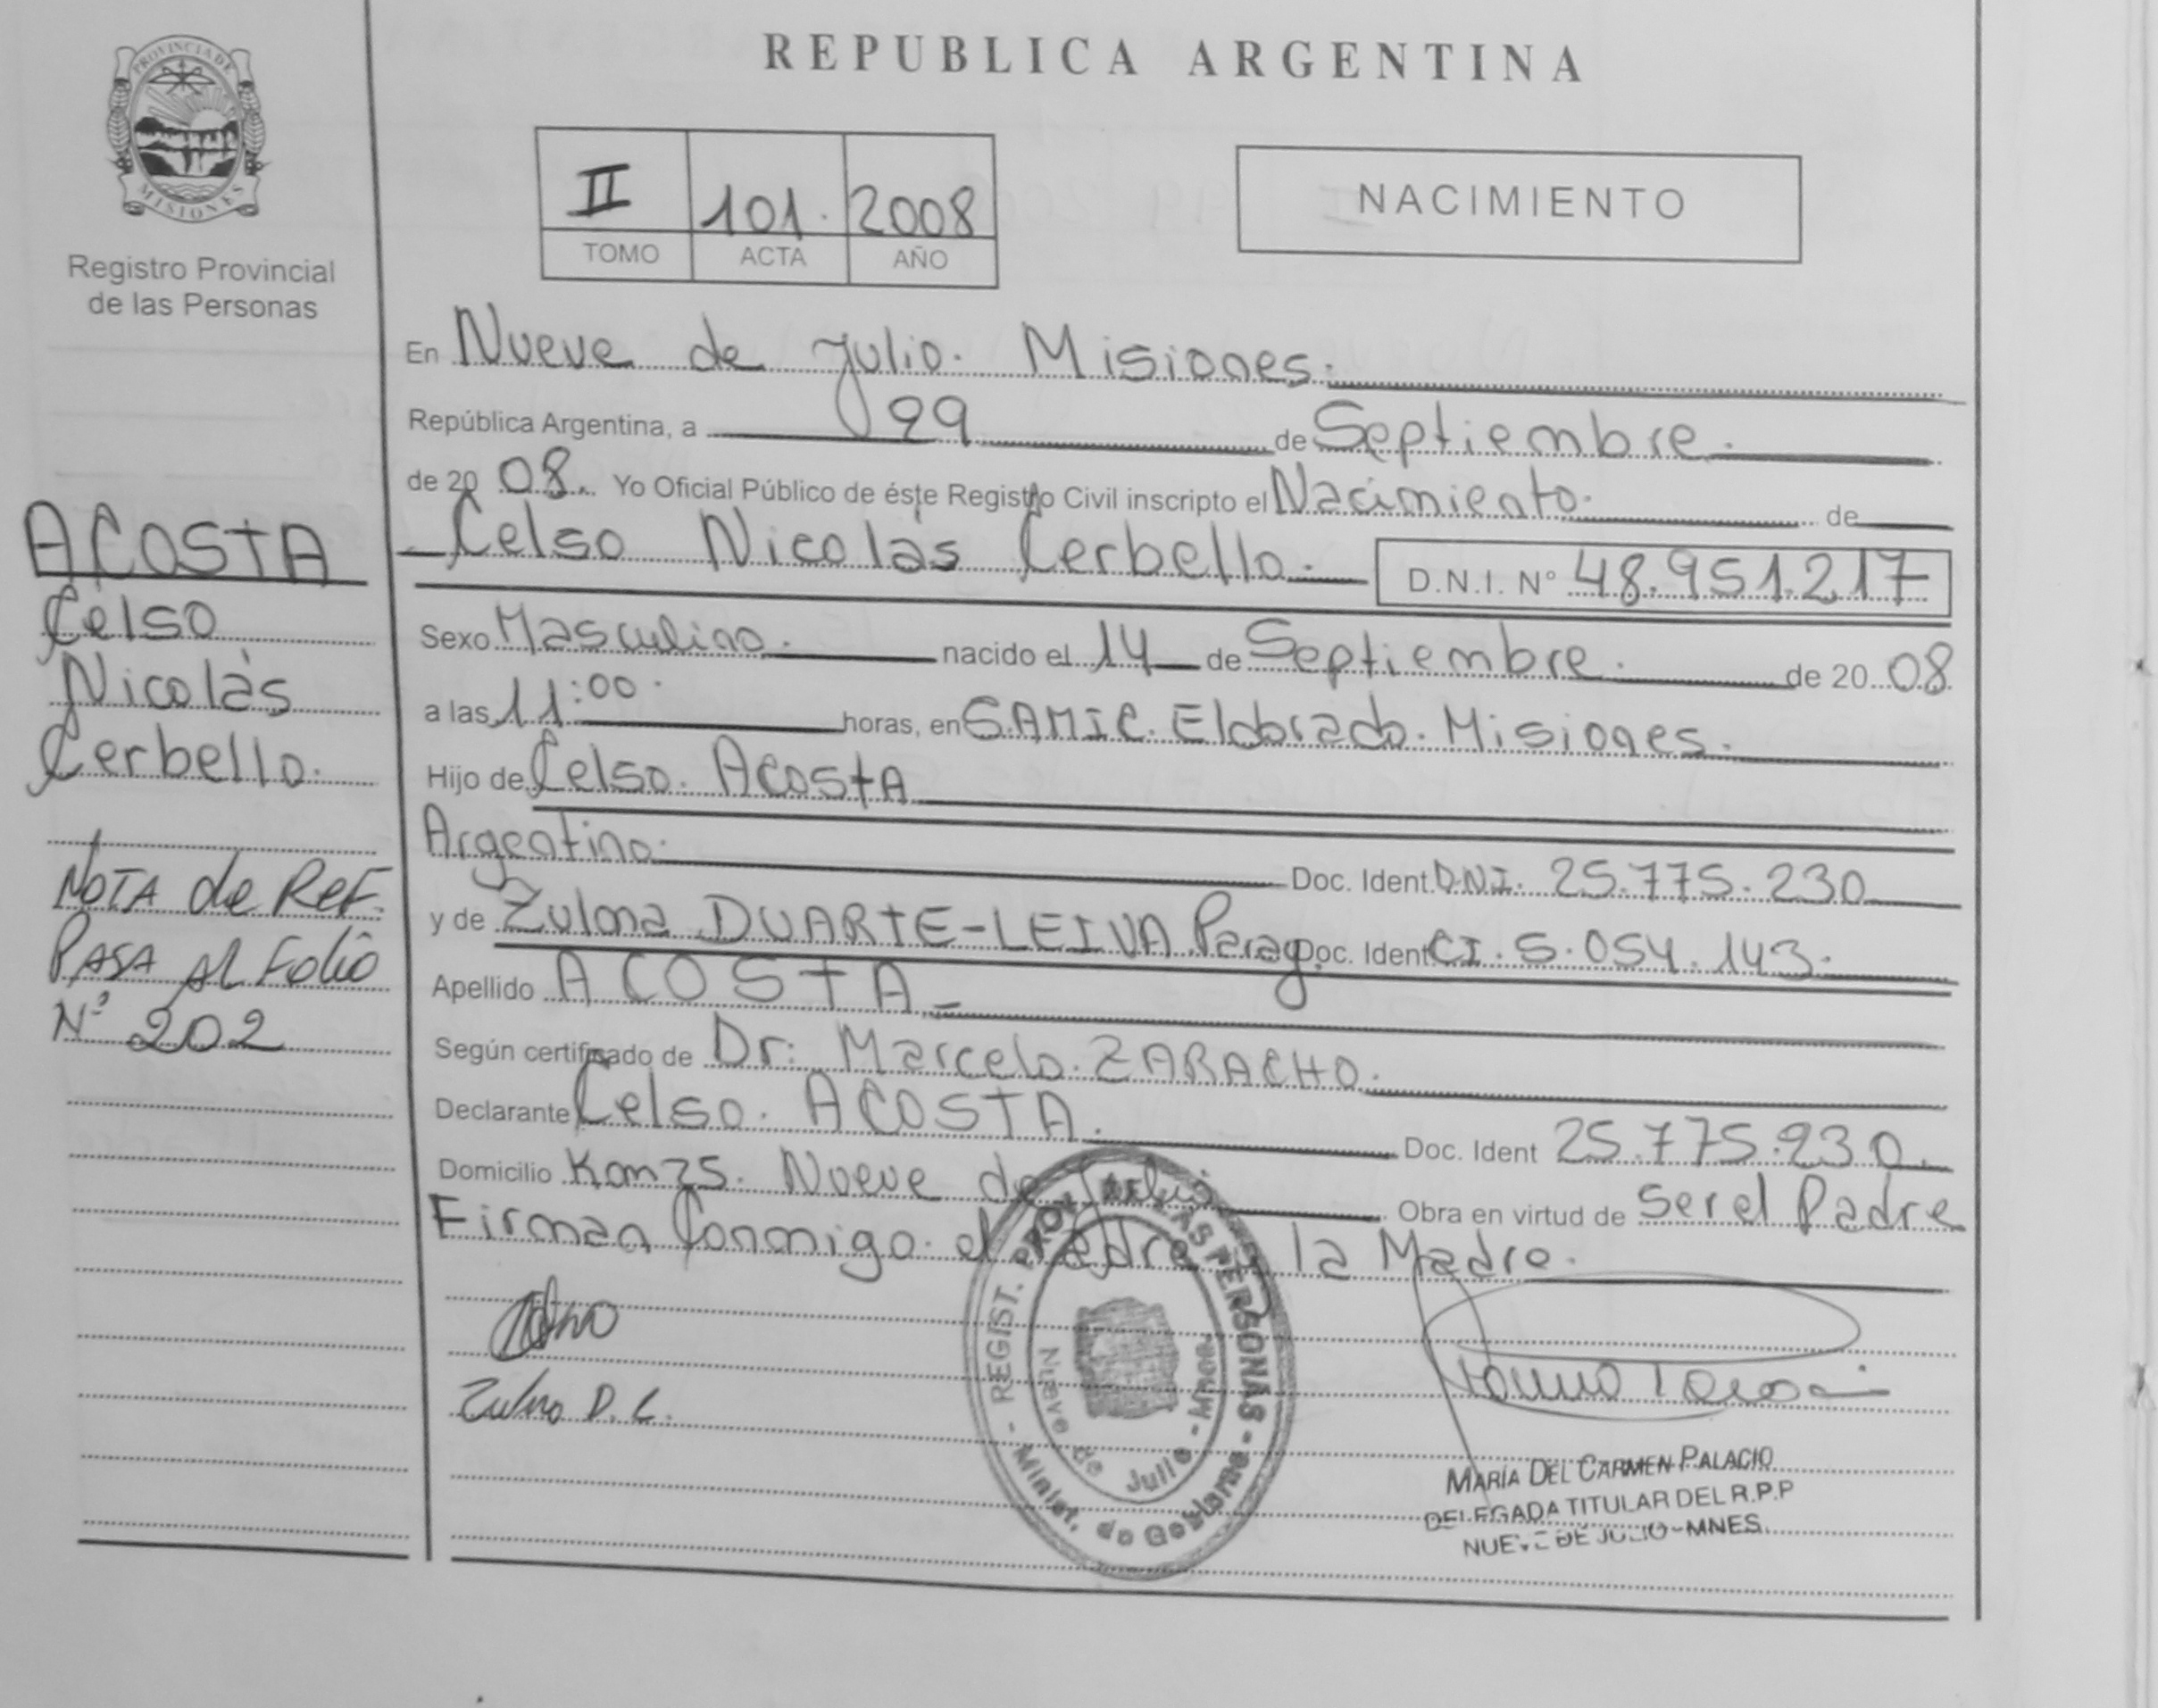 REPUBLICA ARGENTINA
PROVINCIA DE
MISIONES
Registro Provincial
de las Personas
II 101. 2008
TOMO ACTA AÑO
NACIMIENTO
En Nueve de Julio. Misiones.
República Argentina, a 29 de Septiembre.
de 20 08. Yo Oficial Público de éste Registro Civil inscripto el Nacimiento. de
Celso Nicolás Cerbello. D.N.I. N° 48.951.217
Sexo Masculino. nacido el 14 de Septiembre. de 20 08
a las 11:00. horas, en SAMIC. Eldorado. Misiones.
Hijo de Celso. ACOSTA
Argentino. Doc. Ident. D.N.I. 25.775.230
y de Zulma DUARTE-LEIVA Parag. Doc. Ident CI. 5.054.143.
Apellido ACOSTA
Según certificado de Dr. Marcelo. ZARACHO.
Declarante Celso. ACOSTA. Doc. Ident 25.775.230.
Domicilio Km 75. Nueve de Julio Obra en virtud de ser el Padre
Firman Conmigo. el Padre y la Madre.
ACOSTA
Celso
Nicolás
Cerbello.
NOTA de REF.
PASA Al Folio
N° 202
Zulma D. L.
REGIST. PROV. DE LAS PERSONAS - Minist. de Gobierno -
Nueve de Julio - Mnes.
MARÍA DEL CARMEN PALACIO
DELEGADA TITULAR DEL R.P.P
NUEVE DE JULIO-MNES.